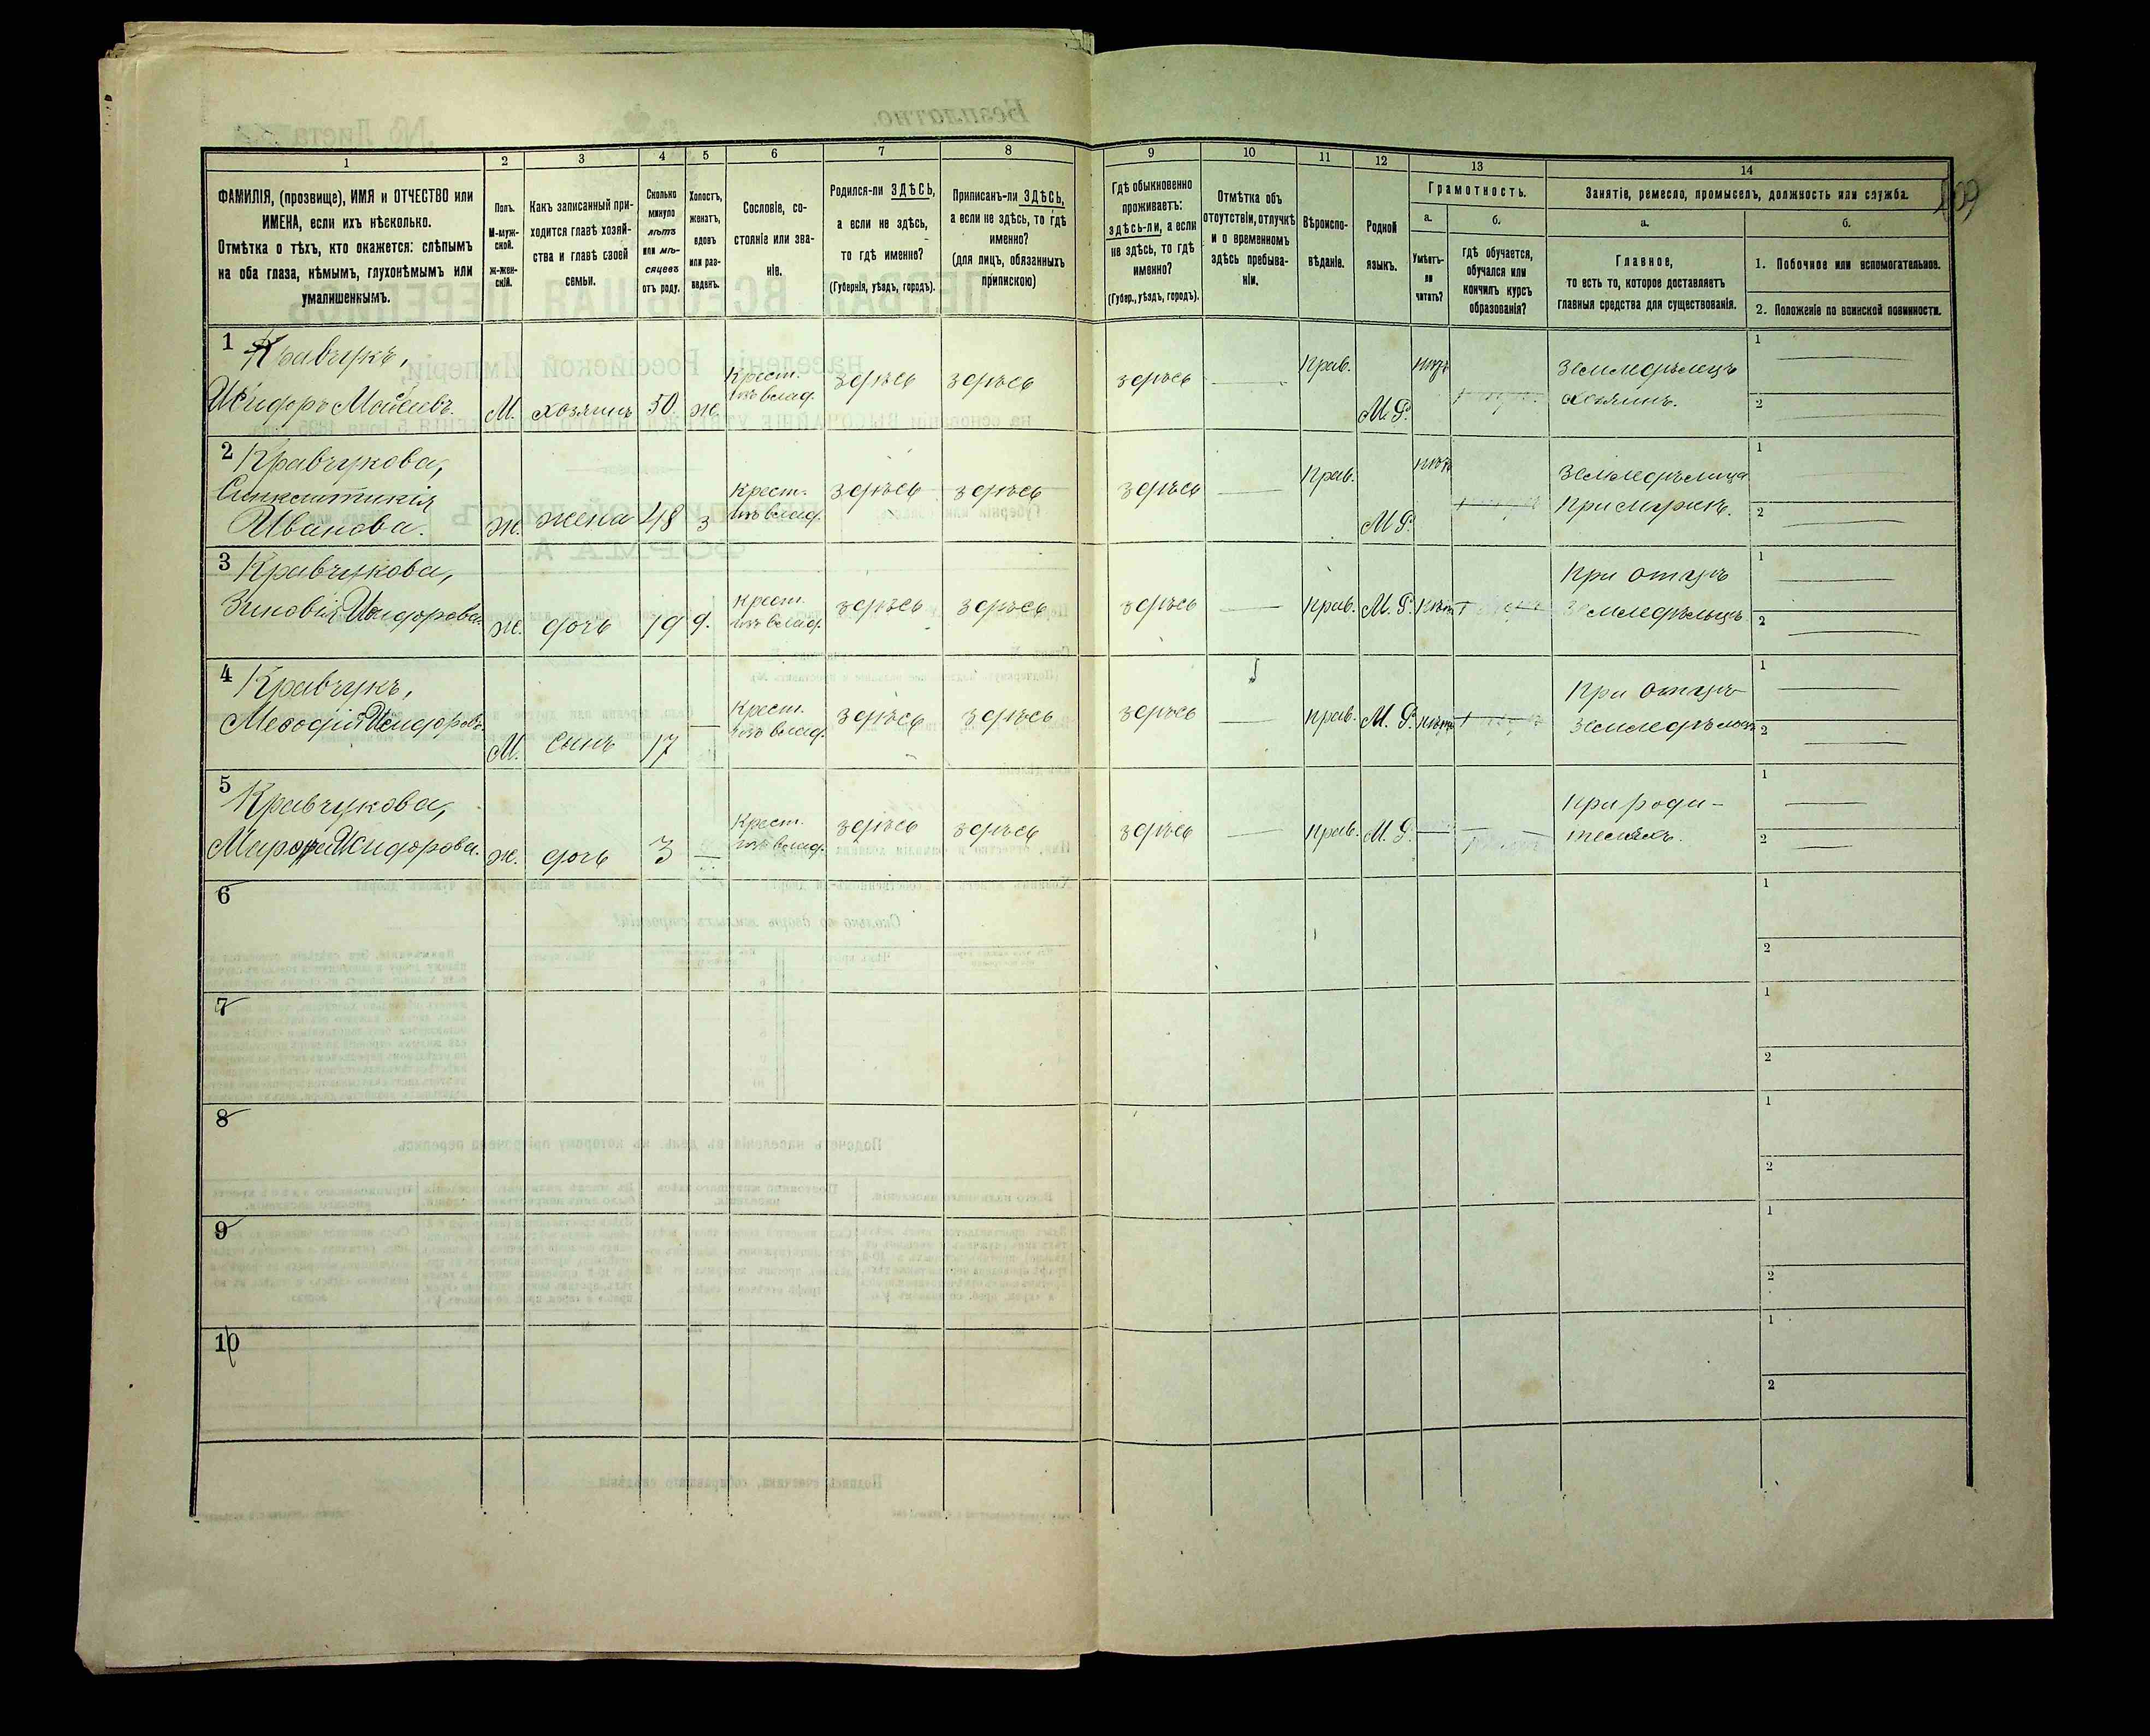 1 2 3 4 5 6 7 8 9 10 11 12 13 14
ФАМИЛІЯ, (прозвище), ИМЯ и ОТЧЕСТВО или
ИМЕНА, если ихъ нѣсколько.
Отмѣтка о тѣхъ, кто окажется: слѣпымъ
на оба глаза, нѣмымъ, глухонѣмымъ или
умалишеннымъ.
Полъ.
М-муж-
ской.
Ж-жен-
скій.
Какъ записанный при-
ходится главѣ хозяй-
ства и главѣ своей
семьи.
Сколько
минуло
лѣтъ
или мѣ-
сяцевъ
отъ роду.
Холостъ,
женатъ,
вдовъ
или раз-
веденъ.
Сословіе, со-
стояніе или зва-
ніе.
Родился-ли ЗДѢСЬ,
а если не здѣсь,
то гдѣ именно?
(Губернія, уѣздъ, городъ).
Приписанъ-ли ЗДѢСЬ,
а если не здѣсь, то гдѣ
именно?
(для лицъ, обязанныхъ
припискою)
Гдѣ обыкновенно
проживаетъ:
здѣсь-ли, а если
не здѣсь, то гдѣ
именно?
(Губер., уѣздъ, городъ).
Отмѣтка объ
отсутствіи, отлучкѣ
и о временномъ
здѣсь пребыва-
ніи.
Вѣроиспо-
вѣданіе.
Родной
языкъ.
Грамотность.
а.
Умѣетъ-
ли
читать?
б.
Гдѣ обучается,
обучался или
кончилъ курсъ
образованія?
Занятіе, ремесло, промыселъ, должность или служба.
а.
Главное,
то есть то, которое доставляетъ
главныя средства для существованія.
б.
1. Побочное или вспомогательное.
2. Положеніе по воинской повинности.
1 Кравчукъ,
Исидоръ Моисеевъ. М. хозяинъ 50 ж. Крест. здѣсь здѣсь здѣсь Прав. М. Р. нѣтъ
Земледѣлецъ
хозяинъ.
1
2
2 Кравчукова,
Синклитикія
Иванова. Ж. жена 48 з Крест. здѣсь здѣсь здѣсь Прав. М Р. нѣтъ
Земледѣлица
При мужѣ.
1
2
3 Кравчукова,
Зиновія Исидорова. Ж. дочь 19 д. Крест. здѣсь здѣсь здѣсь Прав. М. Р. нѣтъ
При отцѣ
земледѣльцѣ
1
2
4 Кравчукъ,
Меѳодій Исидоровъ. М. сынъ 17 Крест. здѣсь здѣсь здѣсь Прав. М. Р. нѣтъ
При отцѣ
земледѣльцѣ
1
2
5 Кравчукова,
Исидорова. Ж. дочь 3 Крест. здѣсь здѣсь здѣсь Прав. М. Р.
При роди-
теляхъ.
1
2
6
1
2
7
1
2
8
1
2
9
1
2
10
1
2